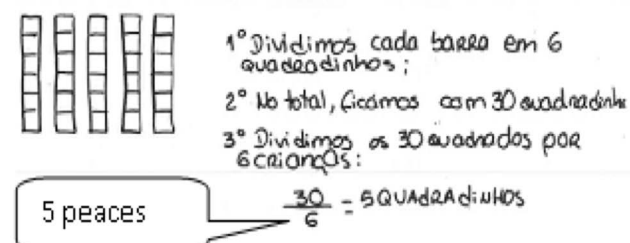 1º Dividimos cada barra em 6
quadradinhos;
2º No total, ficamos com 30 quadradinh
3º Dividimos os 30 quadrados por
6 crianças:
30/6 = 5 QUAdRAdiNHOS
5 peaces